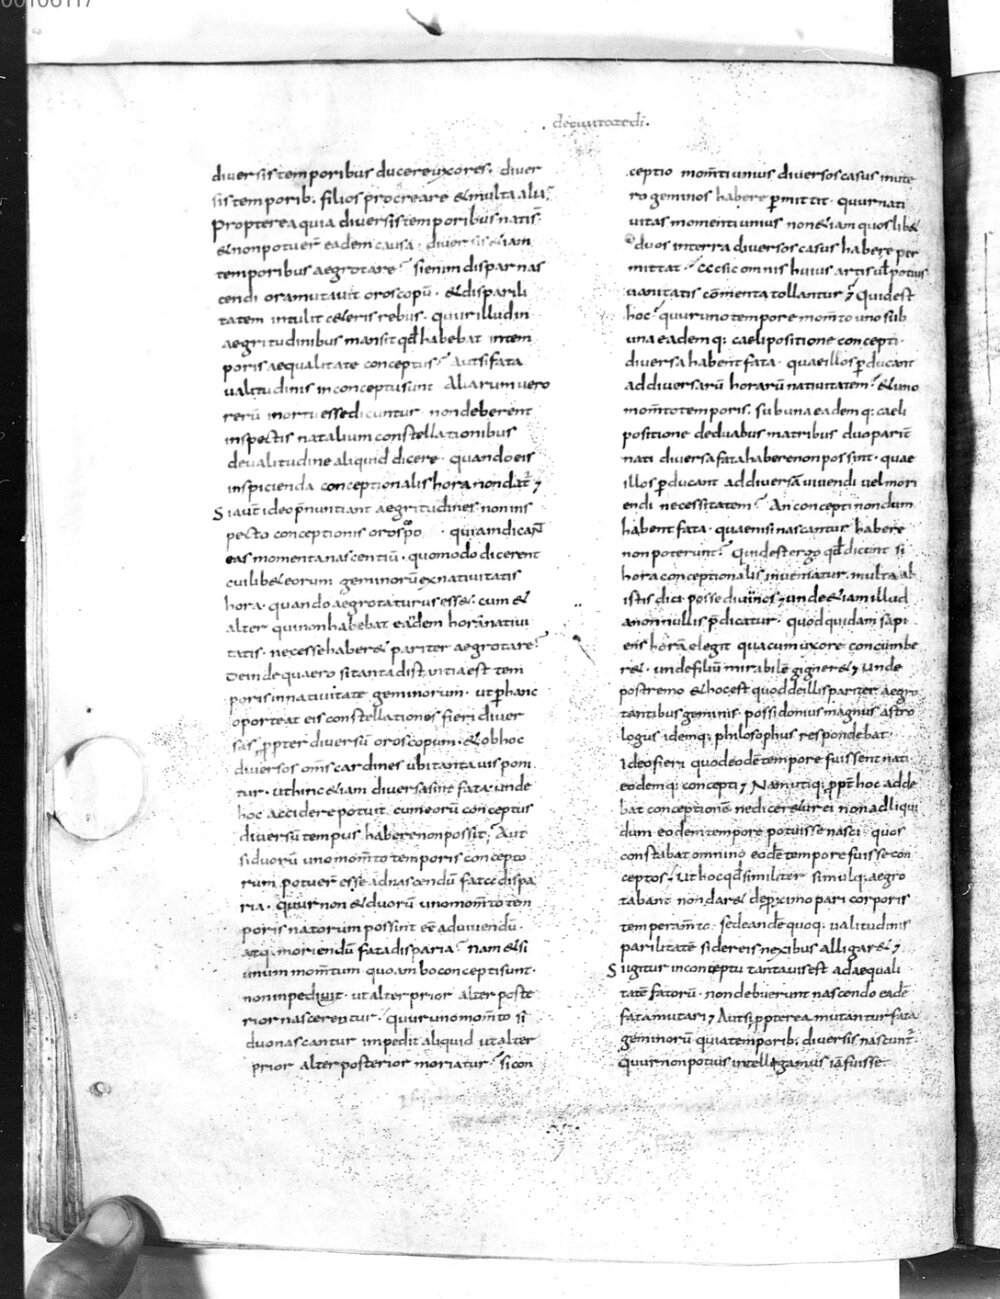 00106117
decıuıtatedī.
diuersis temporibus ducere uxores. diuer
sis temporib; filios procreare & multa alia?
Propterea quia diuersis temporibus natis
& non potuer̄ eadem causa. diuersis etiam
temporibus aegrotare? si enim dispar nas
cendi ora mutauit oroscopū. & dispari
tatem intulit cęteris rebus. quur illud in
aegritudinibus mansit qđ habebat in tem
poris aequalitate conceptus? Aut si fata
ualitudinis in conceptu sunt Aliarum uero
rerū in ortu esse dicuntur. non deberent
inspectis natalium constellationibus
de ualitudine aliquid dicere. quando eis
inspicienda conceptionalis hora non dat̄;
Si aut̄ ideo p̄nuntiant aegritudines non ins
pecto conceptionis orospo quia indican̄
eas momenta nascentiū. quomodo dicerent
cuilibet eorum geminorū ex natiuitatis
hora. quando aegrotaturus esset. cum &
alter qui non habebat eadem horā natiui
tatis. necesse haberet pariter aegrotare?
Deinde quaero si tanta distantia est tem
poris in natiuitate geminorum. ut p̱ hanc
oporteat eis constellationes fieri diuer
sas, ppter diuersū oroscopum. & ob hoc
diuersos om̄s cardines ubi tanta uis poni
tur. ut hinc etiam diuersa sint fata. unde
hoc accidere potuit. cum eorū conceptus
diuersū tempus habere non possit; Aut
si duorū uno mom̄to temporis concepto
rum potuer̄ esse ad nascendū fata dispa
ria. quur non & duorū uno mom̄to tem
poris natorum possint eē ad uiuendū.
atq; moriendū fata disparia? nam & si
unum mom̄tum. quo ambo concepti sunt.
non inpediuit. ut alter prior alter poste
rior nasceretur. quur uno mom̄to si
duo nascantur impedit aliquid ut alter
prior alter posterior moriatur? si con
ceptio mom̄ti unius diuersos casus in ute
ro geminos habere p̱mittit. quur nati
uitas momenti unius non etiam quoslibet
duos in terra diuersos casus habere per
mittat? ac sic omnis huius artis ul̄ potius
uanitatis cōmenta tollantur; Quid est
hoc. quur uno tempore mom̄to uno sub
una eademq; caeli positione concepti.
diuersa habent fata. quae illos p̱ducant
ad diuersarū horarū natiuitatem? & uno
mom̄to temporis. sub una eademq; caeli
positione de duabus matribus duo parit̄
nati diuersa fata habere non possint. quae
illos p̱ducant ad diuersā uiuendi uel mori
endi necessitatem? An concepti nondum
habent fata. quae nisi nascantur habere
non poterunt? Quid est ergo qđ dicunt si
hora conceptionalis inueniatur. multa ab
istis dici posse diuinos; unde etiam illud
a nonnullis p̄dicatur. quod quidam sapi
ens horā elegit qua cum uxore concumbe
ret. unde filiū mirabilē gigneret; Unde
postremo & hoc est quod de illis pariter aegro
tantibus geminis. possidonius magnus astro
logus idemq; philosophus respondebat.
Ideo fieri quod eodē tempore fuissent nati.
eodemq; concepti; Nam utiq; ppt̄ hoc adde
bat conceptionē ne diceretur ei non ad liqui
dum eodem tempore potuisse nasci. quos
constabat omnino eodē tempore fuisse con
ceptos; Ut hoc qđ similiter simulq; aegro
tabant non daret de pxino pari corporis
temperam̄to. sed eandē quoq; ualitudinis
parilitatē sidereis nexibus alligaret;
Si igitur in conceptu tanta uis est ad aequali
tatē fatorū. non debuerunt nascendo eadē
fata mutari; Aut si ppterea mutantur fata
geminorū quia temporib; diuersis nascunt̄.
Quur non potius intellegamus iā fuisse